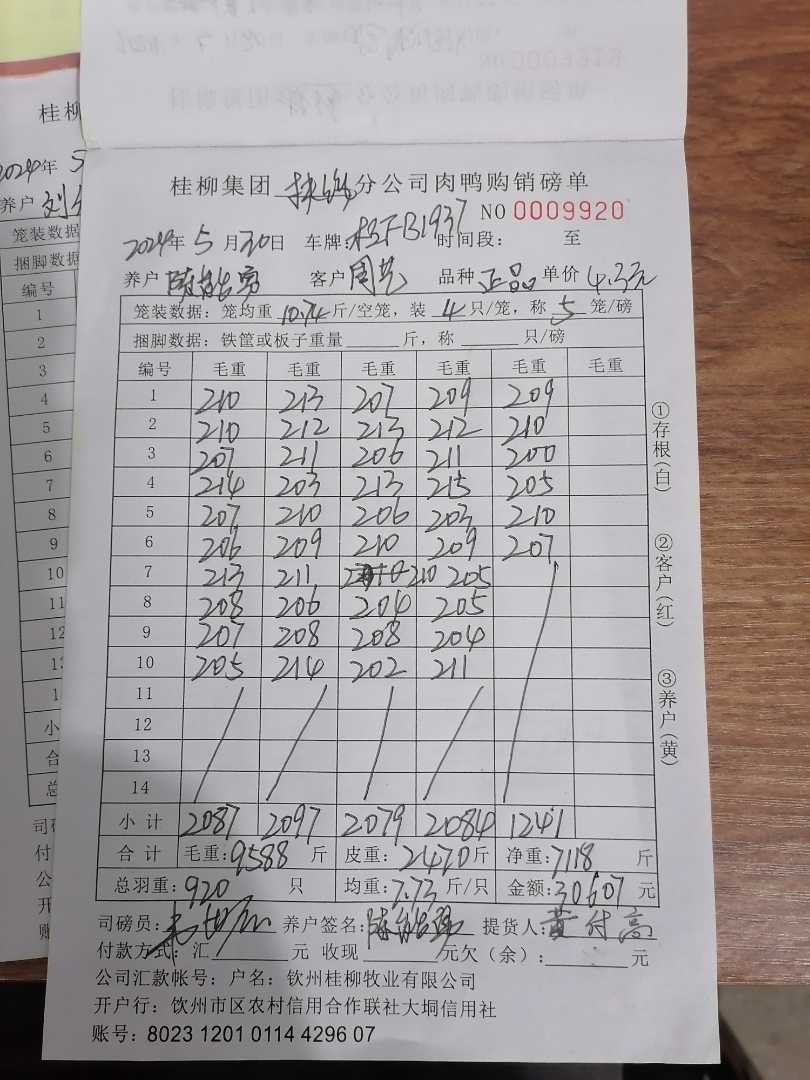 桂柳
2024年 5
养户 刘
笼装数据
捆脚数据
编号
1
2
3
4
5
6
7
8
9
10
11
12
小
合
司
付
公
开
账
桂柳集团 分公司肉鸭购销磅单
NO 0009920
2024年 5 月 30 日 车牌: 桂FB1937 时间段: 至
养户 陈能勇 客户 周艺 品种 正品 单价 4.3元
笼装数据: 笼均重 10.74 斤/空笼, 装 4 只/笼, 称 5 笼/磅
捆脚数据: 铁筐或板子重量 斤, 称 只/磅
编号 毛重 毛重 毛重 毛重 毛重 毛重
1 210 213 207 209 209
2 210 212 213 212 210
3 207 211 206 211 200
4 214 203 213 215 205
5 207 210 206 203 210
6 206 209 210 209 207
7 213 211 210 205
8 208 206 204 205
9 207 208 208 204
10 205 214 202 211
11
12
13
14
小计 2087 2097 2079 2084 1241
合计 毛重: 9588 斤 皮重: 2470 斤 净重: 7118 斤
总羽重: 920 只 均重: 7.73 斤/只 金额: 30607 元
司磅员: 养户签名: 陈能勇 提货人: 黄付高
付款方式: 汇 元 收现 元欠(余): 元
公司汇款帐号: 户名: 钦州桂柳牧业有限公司
开户行: 钦州市区农村信用合作联社大垌信用社
账号: 8023 1201 0114 4296 07
①存根(白)
②客户(红)
③养户(黄)